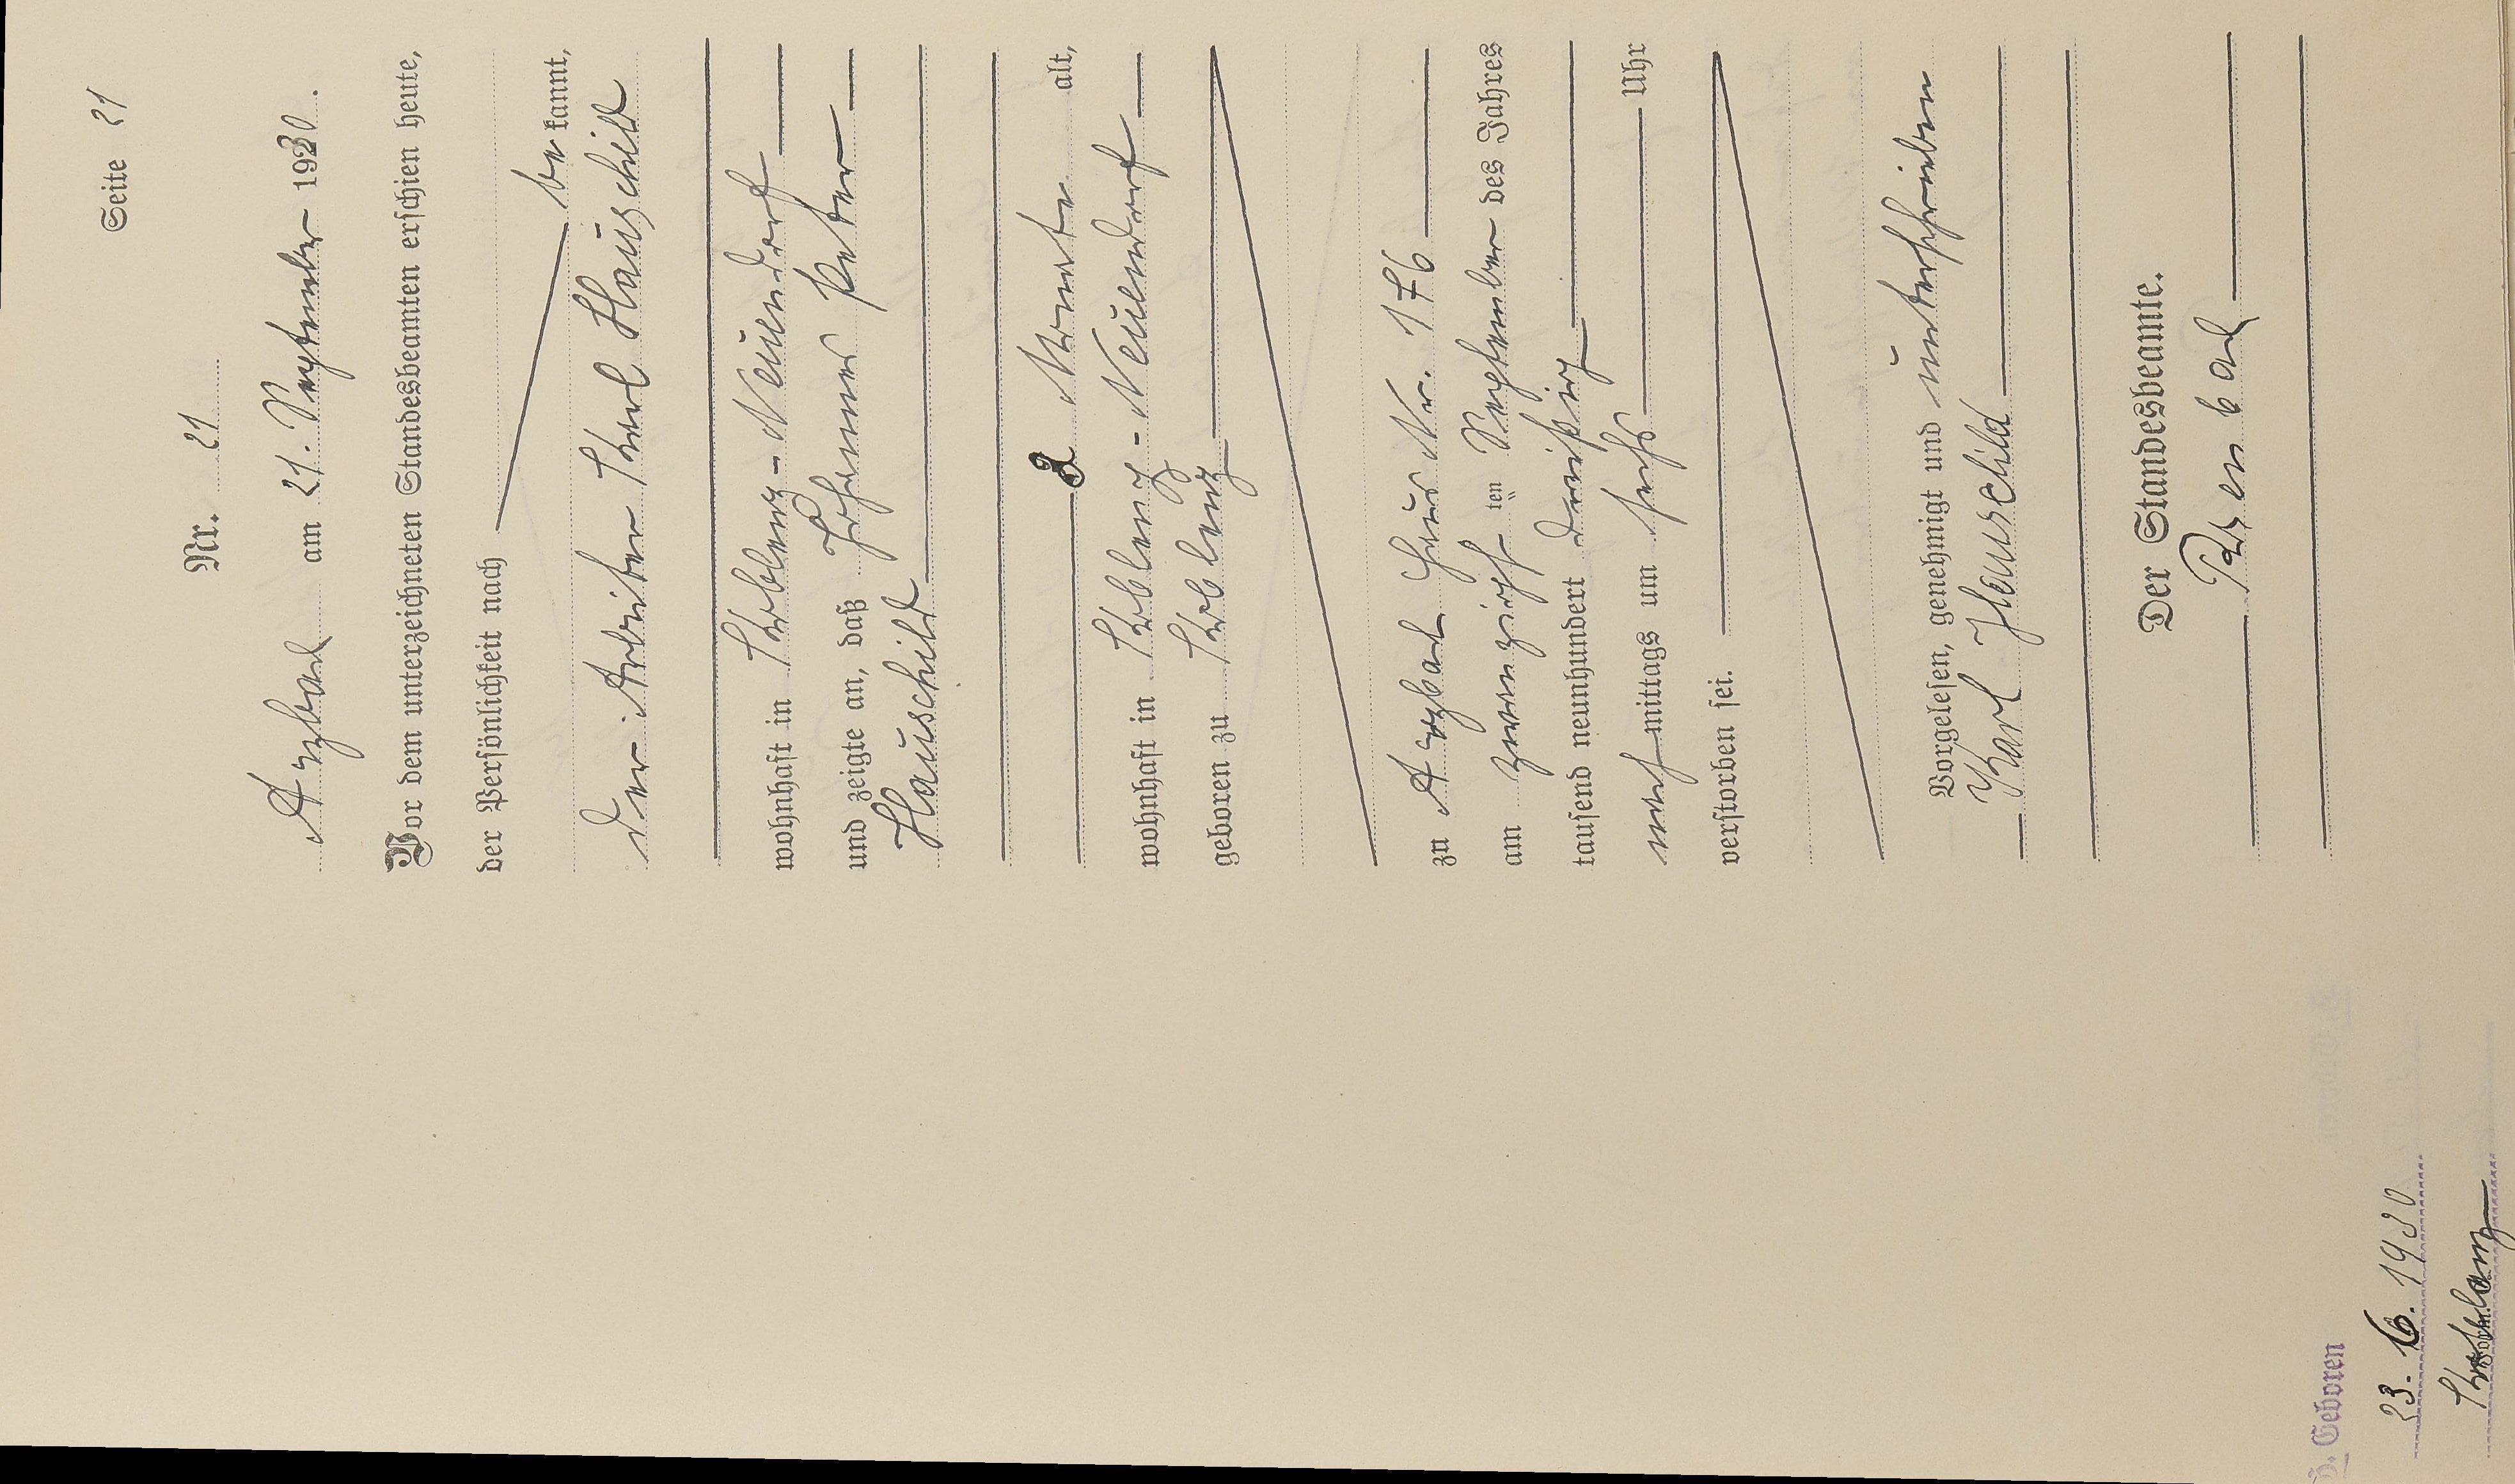 Seite 21
Nr. 21
Arzbach am 21. September 1930.
Vor dem unterzeichneten Standesbeamten erschien heute,
der Persönlichkeit nach
be kannt,
der Arbeiter Karl Hauschild
wohnhaft in Koblenz-Neuendorf
und zeigte an, daß Johannes Peter
Hauschild
3 Monate alt,
wohnhaft in Koblenz-Neuendorf
geboren zu Koblenz
zu Arzbach Haus Nr. 176
am zwanzigsten September des Jahres
tausend neunhundert dreißig
nachmittags um sechs Uhr
verstorben sei.
Vorgelesen, genehmigt und unterschrieben
Karl Hauschild
Der Standesbeamte.
Geboren
23. 6. 1930
Koblenz